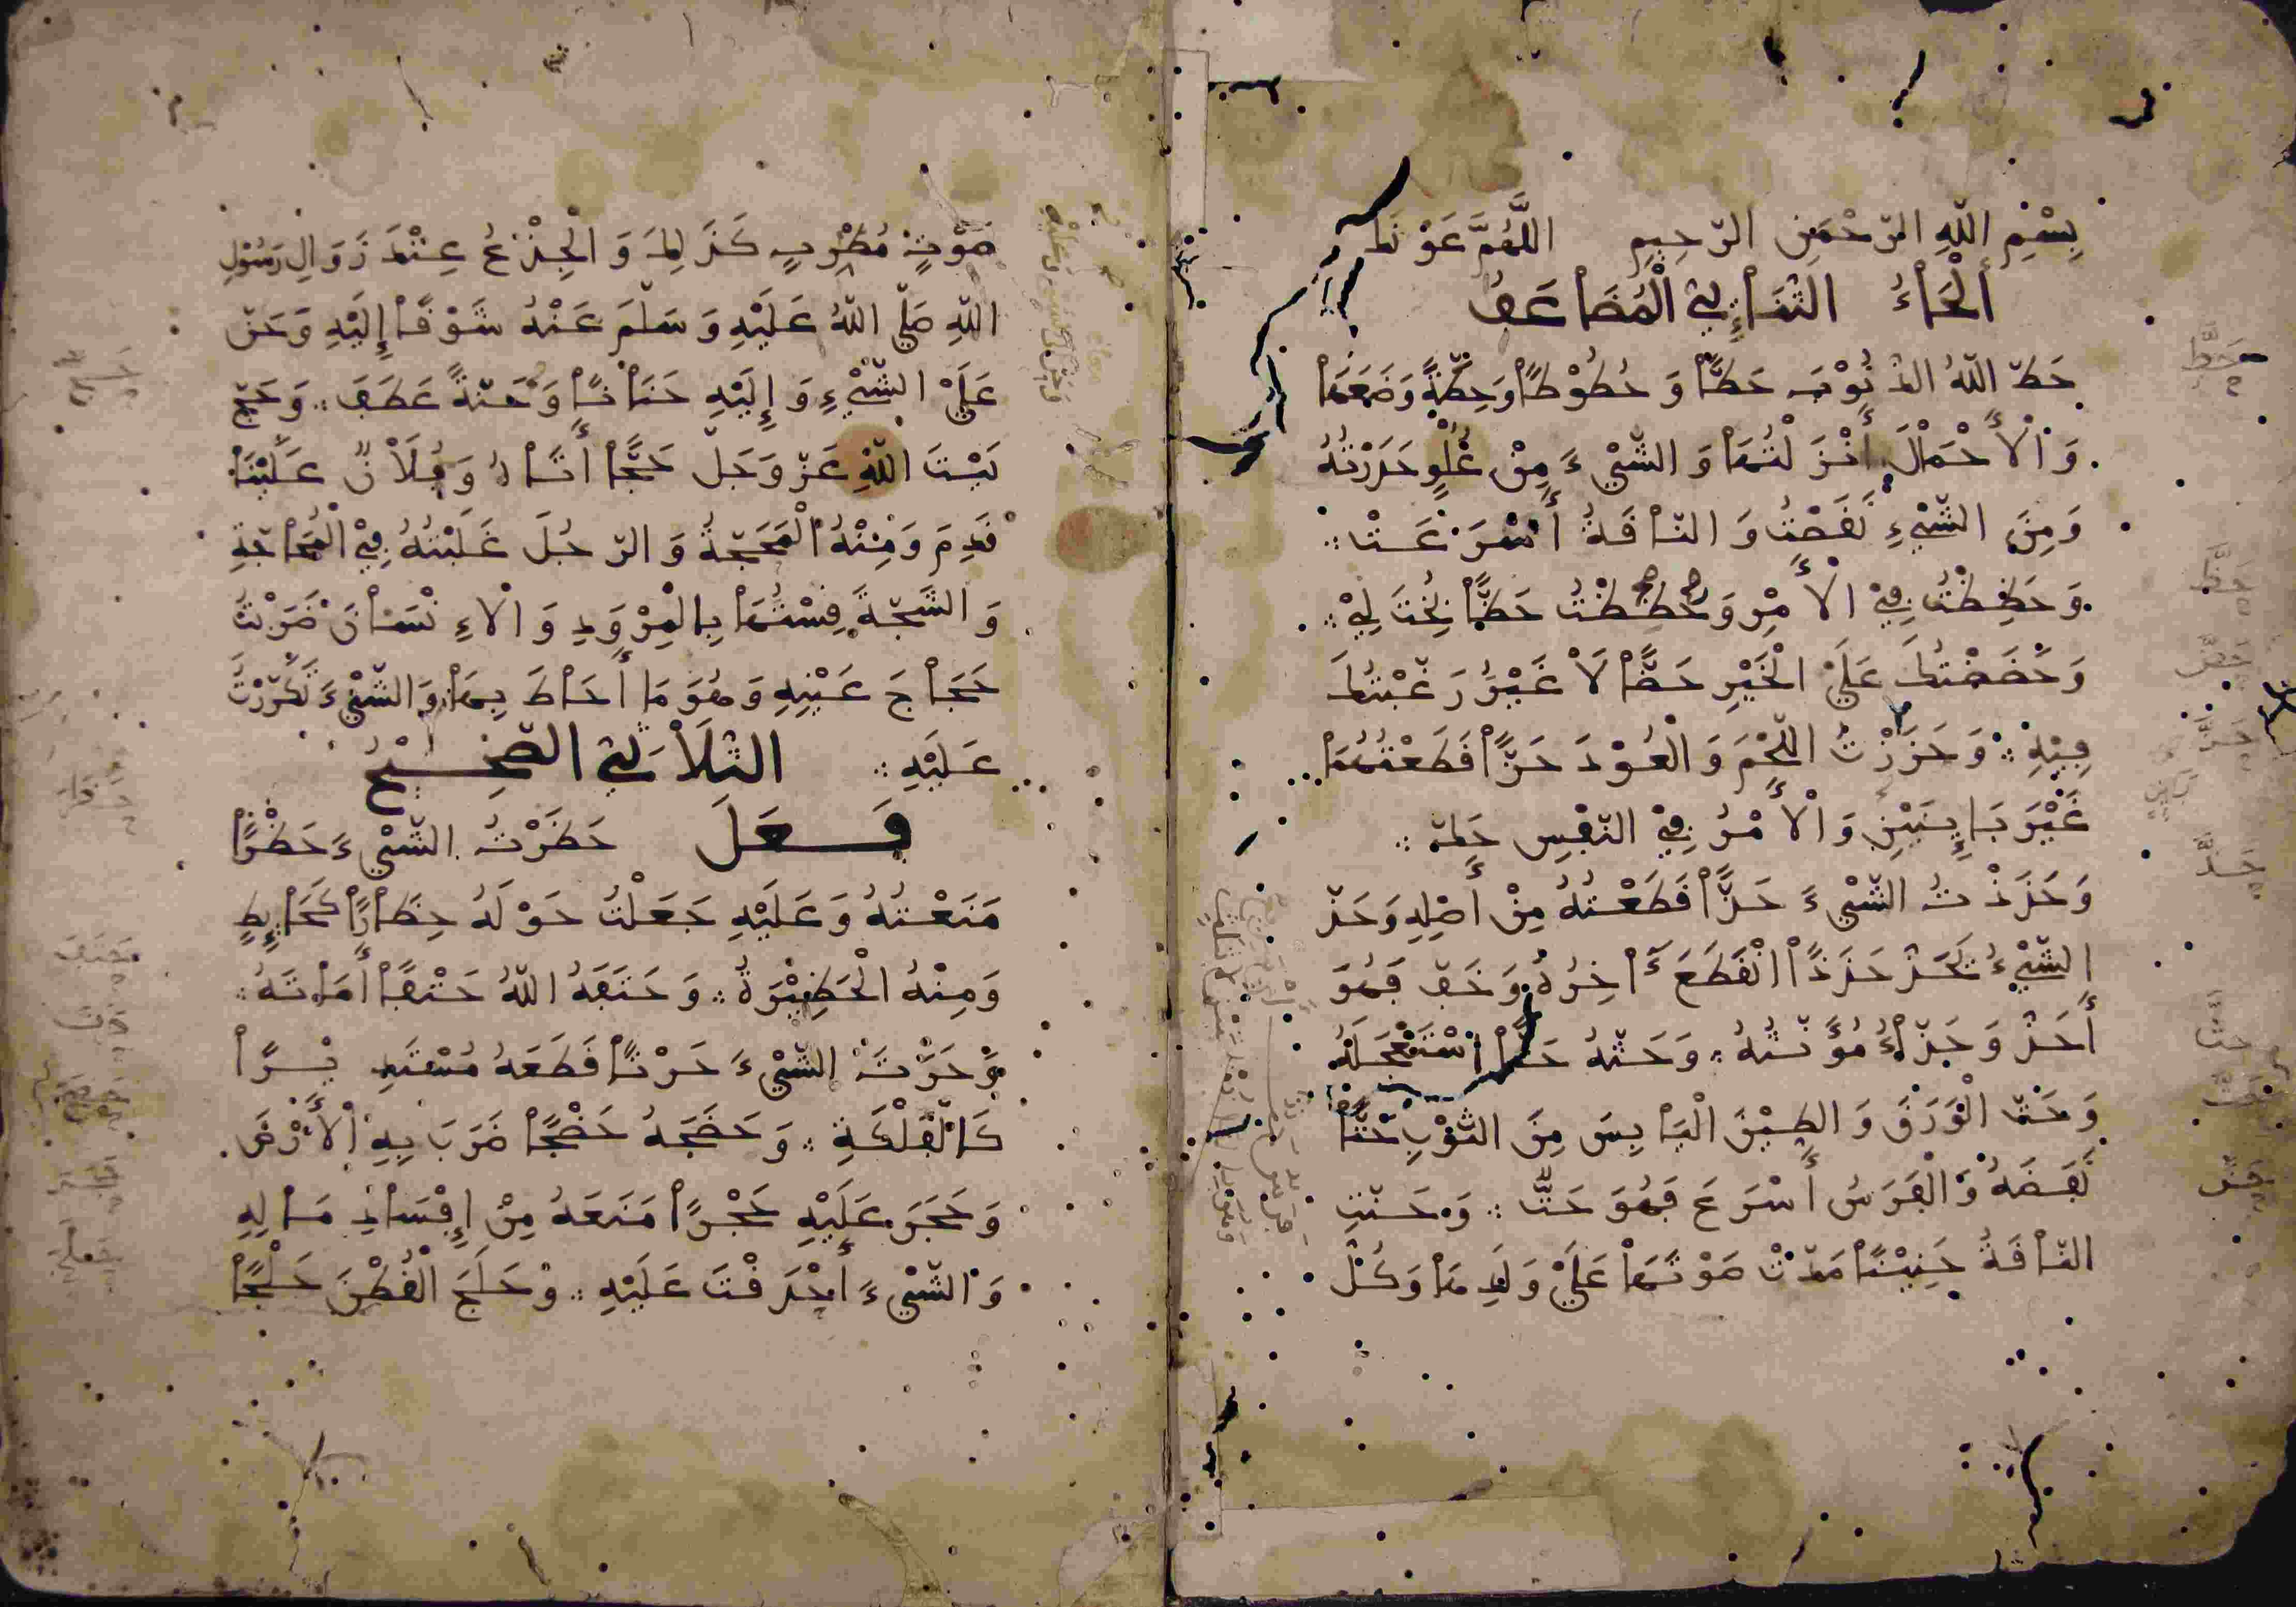 بِسْمِ اللّهِ الرّحْمَنِ الرّحِيمِ اللَّهُمَّ عَوْنَكَ
الْحَاءُ الثّنَائِيّ الْمُضَاعَفُ
حَطّ اللّهُ الذُّنُوبَ حَطًّا وَحُطُوْطًا وَحِطّةً وَضَعَهَا
وَالْأَحْمَالَ أَنْزَلْتُهَا وَالشّيْءَ مِنْ عُلْوٍ حَدَرْتُهُ
وَمِنَ الشّيْءِ نَقَصْتُ وَالنّاقَةُ أَسْرَعَتْ
وَحَظِظْتُ فِيْ الْأَمْرِ وَحُظِظْتُ حَظًّا بُخِتَ لِيْ
وَحَضَضْتُكَ عَلَيْ الْخَيْرِ حَضًّا لَا غَيْرُ رَغّبْتُكَ
فِيْهِ وَحَزَزْتُ اللّحْمَ وَالْعُوْدَ حَزًّا قَطَعْتُهُمَا
غَيْرَ بَائِنَيْنِ وَالْأَمْرُ فِيْ النّفْسِ حَكّ
وَحَذَذْتُ الشّيْءَ حَذًّا قَطَعْتُهُ مِنْ أَصْلِهِ وَحَذّ
الشّيْءُ يَحَذّ حَذَذًا انْقَطَعَ آخِرُهُ وَخَفّ فَهُوَ
أَحَذّ وَحَذّاءُ مُؤَنّثُهُ وَحَثّهُ حَثًّا اسْتَعْجَلَهُ
وَحَتّ الْوَرَقَ وَالطِيْنَ الْيَابِسَ مِنَ الثّوْبِ حَتًّا
نَفَضَهُ وَالْفَرَسُ أَسْرَعَ فَهُوَ حَتٌّ وَحَنّتِ
النّاقَةُ حَنِيْنًا مَدّتْ صَوْتَهَا عَلَيْ وَلَدِهَا وَكُلّ
صَوْتٍ مُطْرِبٍ كَذَلِكَ وَالْجِذْعُ عِنْدَ زَوَالِ رَسُوْلِ
اللّهِ صَلّي اللّهُ عَلَيْهِ وَسَلّمَ عَنْهُ شَوْقًا إِلَيْهِ وَحَنّ
عَلَيْ الشّيْءِ وَإِلَيْهِ حَنَانًا وَحَنّةً عَطَفَ وَحَجّ
بَيْتَ اللّهِ عَزّ وَجَلّ حَجًّا أَتَاهُ وَفُلَانٌ عَلَيْنَا
قَدِمَ وَمِنْهُ الْمَحَجّةُ وَالرّجُلَ غَلَبْتُهُ فِيْ الْمُحَاجّةِ
وَالشّجّةَ قِسْتُهَا بِالْمِرْوَدِ وَالْإِنْسَانَ ضَرَبْتُ
حَجَاجَ عَيْنِهِ وَهُوَ مَا أَحَاطَ بِهَا وَالشّيْءَ تَكَرّرْتُ
عَلَيْهِ الثّلَاثِيّ الصّحِيْحُ
فَعَلَ حَظَرْتُ الشّيْءَ حَظْرًا
مَنَعْتُهُ وَعَلَيْهِ جَعَلْتُ حَوْلَهُ حِظَارًا كَحَائِطٍ
وَمِنْهُ الْحَظِيْرَةُ وَحَتَفَهُ اللّهُ حَتْفًا أَمَاتَهُ
وَحَرَتَ الشّيْءَ حَرْتًا قَطَعَهُ مُسْتَدِيْرًا
كَالْفَلْكَةِ وَحَضَجَهُ حَضْجًا ضَرَبَ بِهِ الْأَرْضَ
وَحَجَرَ عَلَيْهِ حَجْرًا مَنَعَهُ مِنْ إِفْسَادِ مَالِهِ
وَالشّيْءَ أَحْدَقْتَ عَلَيْهِ وَحَلَجَ الْقُطْنَ حَلْجًا